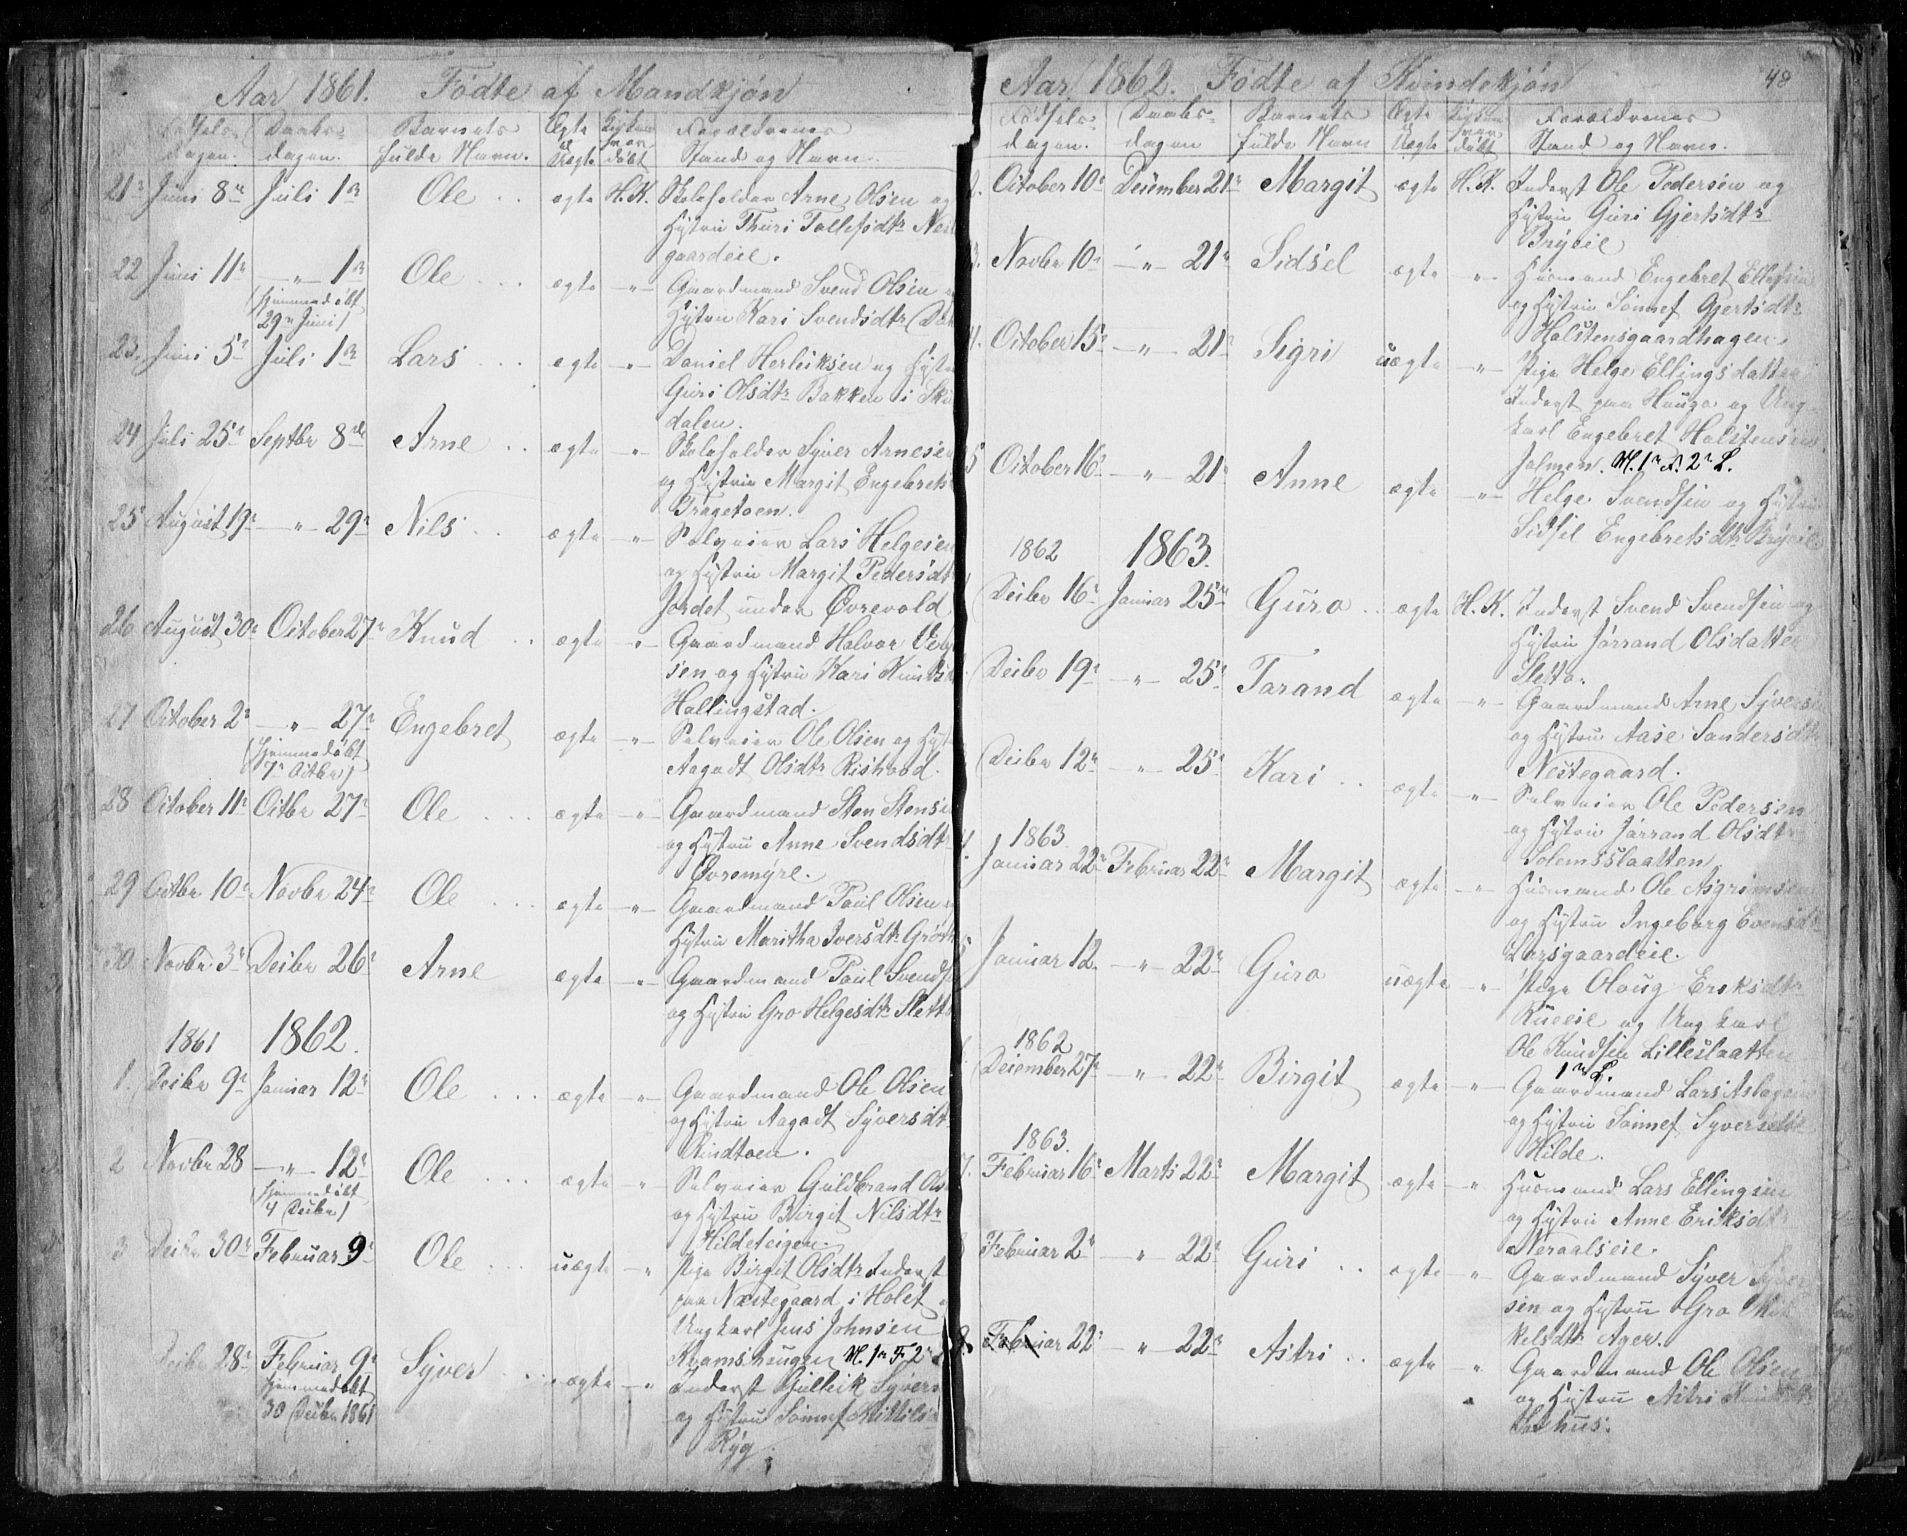 Aar 1861. Fødte af Mandkjøn
Fødsels- dagen. Daabs- dagen. Barnets fulde Navn. Ægte el. Uægte Forældrenes Stand og Navn.
21 Juni 8 Juli 1 Ole ægte H. K. Skoleholder Arne Olsen og
Hustru Thuri Tollefsdtr
gaardeie.
22 Juni 11 — " — 1 Ole ægte — " — Gaardmand Svend Olsen
(hjemmedøbt
29 Juni) Hustru Kari Svendsdtr
23. Juni 5 Juli 1 Lars ægte — " — Daniel Herleiksen og Hustru
Guri Olsdtr Bakken i
dalen.
24 Juli 25 Septbr 8de Arne ægte — " — Skoleholder Syver Arnesen
og Hustru Margit Engebrets
Trøgetoen.
25 August 19 — " — 29 Nils ægte — " — Selveier Lars Helgesen
og Hustru Margit Pedersdtr
Jordet under Øvrevold
26 August 30 October 27 Knud ægte " Gaardmand Halvor
sen og Hustru Kari Knuds
Hallingstad.
27 October 2 — " — 27 Engebret ægte — " — Selveier Ole Olsen og Hustru
(hjemmedøbt
7 Octbr) Aagodt Olsdtr Rishovd.
28 October 11 Octbr 27 Ole ægte — " Gaardmand Sten Stensen
og Hustru Anne Svendsdtr
Øvremyre.
29 Octbr 10 Novbr 24 Ole ægte — " — Gaardmand Paul Olsen
Hustru Maritha Iversdtr
30 Novbr 3 Decbr 26 Arne ægte — " Gaardmand Paul Svends
og Hustru Gro Helgesdtr Sletto
1861 1862.
1. Decbr 9 Januar 12 Ole ægte — " — Gaardmand Ole Olsen
og Hustru Aagodt Syversdtr
Rindtoen.
2 Novbr 28 — " — 12 Ole ægte — " Selveier Guldbrand
(hjemmedøbt
4 Decbr) og Hustru Birgit Nilsdtr
Hildeteigen.
3 Decbr 30 Februar 9 Ole uægte — " Pige Birgit Olsdtr Inderst
paa Næstegaard i Holet
Ungkarl Jens Johnsen
Kvamshaugen M. 1 F. 2
Decbr 28 Februar 9 Syver ægte — " Inderst Gulleik Syvers
hjemmedøbt
30 Decbr 1861 og Hustru Sønnef Kittils
Ryg.
Aar 1862. Fødte af Kvindekjøn 48
Fødsels- dagen. Daabs- dagen Barnets fulde Navn Ægte el. Uægte Forældrenes Stand og Navn.
2. October 10 December 21 Margit ægte H. K. Inderst Ole Pedersen og
Hustru Guri Gjertsdtr
Bryeie
3. Novbr 10 — " — 21 Sidsel ægte — " — Husmand Engebret Ellefsen
og Hustru Sønnef Gjertsdtr
Halstensgaardhagen.
4. October 15 — " — 21 Sigri uægte — " — Pige Helge Ellingsdatter
Inderst paa Hauga og Ung-
karl Engebret Halstensen
Jalmen. M. 1 F. 2 L.
5 October 16 — " — 21 Anne ægte — " — Helge Svendsen og Hustru
Sidsel Engebretsdtr Bryeie
1862 1863.
Decbr 16 Januar 25 Guro ægte H. K. Inderst Svend Svendsen og
Hustru Jørrand Olsdatter
Sletto.
Decbr 19 — " — 25 Tarand ægte — " — Gaardmand Arne Syversen
og Hustru Aase Sandersdtr
Nestegaard.
Decbr 12 — " — 25 Kari ægte — " — Selveier Ole Pedersen
og Hustru Jørrand Olsdtr
Solemsslaatten
1863.
4. Januar 22 Februar 22 Margit ægte — " Husmand Ole Asgrimsen
og Hustru Ingeborg Evensdtr
Larsgaardeie.
5 Januar 12. — " — 22 Guro uægte — " Pige Olaug Eriksdtr
Rueeie og Ungkarl
Ole Knudsen Lilleslaatten
1 L.
1862
December 27 — " — 22 Birgit ægte — " — Gaardmand Lars Aslagsen
og Hustru Sønnef Syversdtr
Hilde.
1863.
7. Februar 16 Marts 22 Margit ægte — " Husmand Lars Ellingsen
og Hustru Anne Eriksdtr
Neraalseie.
Februar 2 — " — 22 Guri ægte — " Gaardmand Syver Syver
sen og Hustru Gro Mik
kelsdtr Ager.
9. Februar 22 — " — 22 Astri ægte " Gaardmand Ole Olsen
og Hustru Astri Knudsdtr